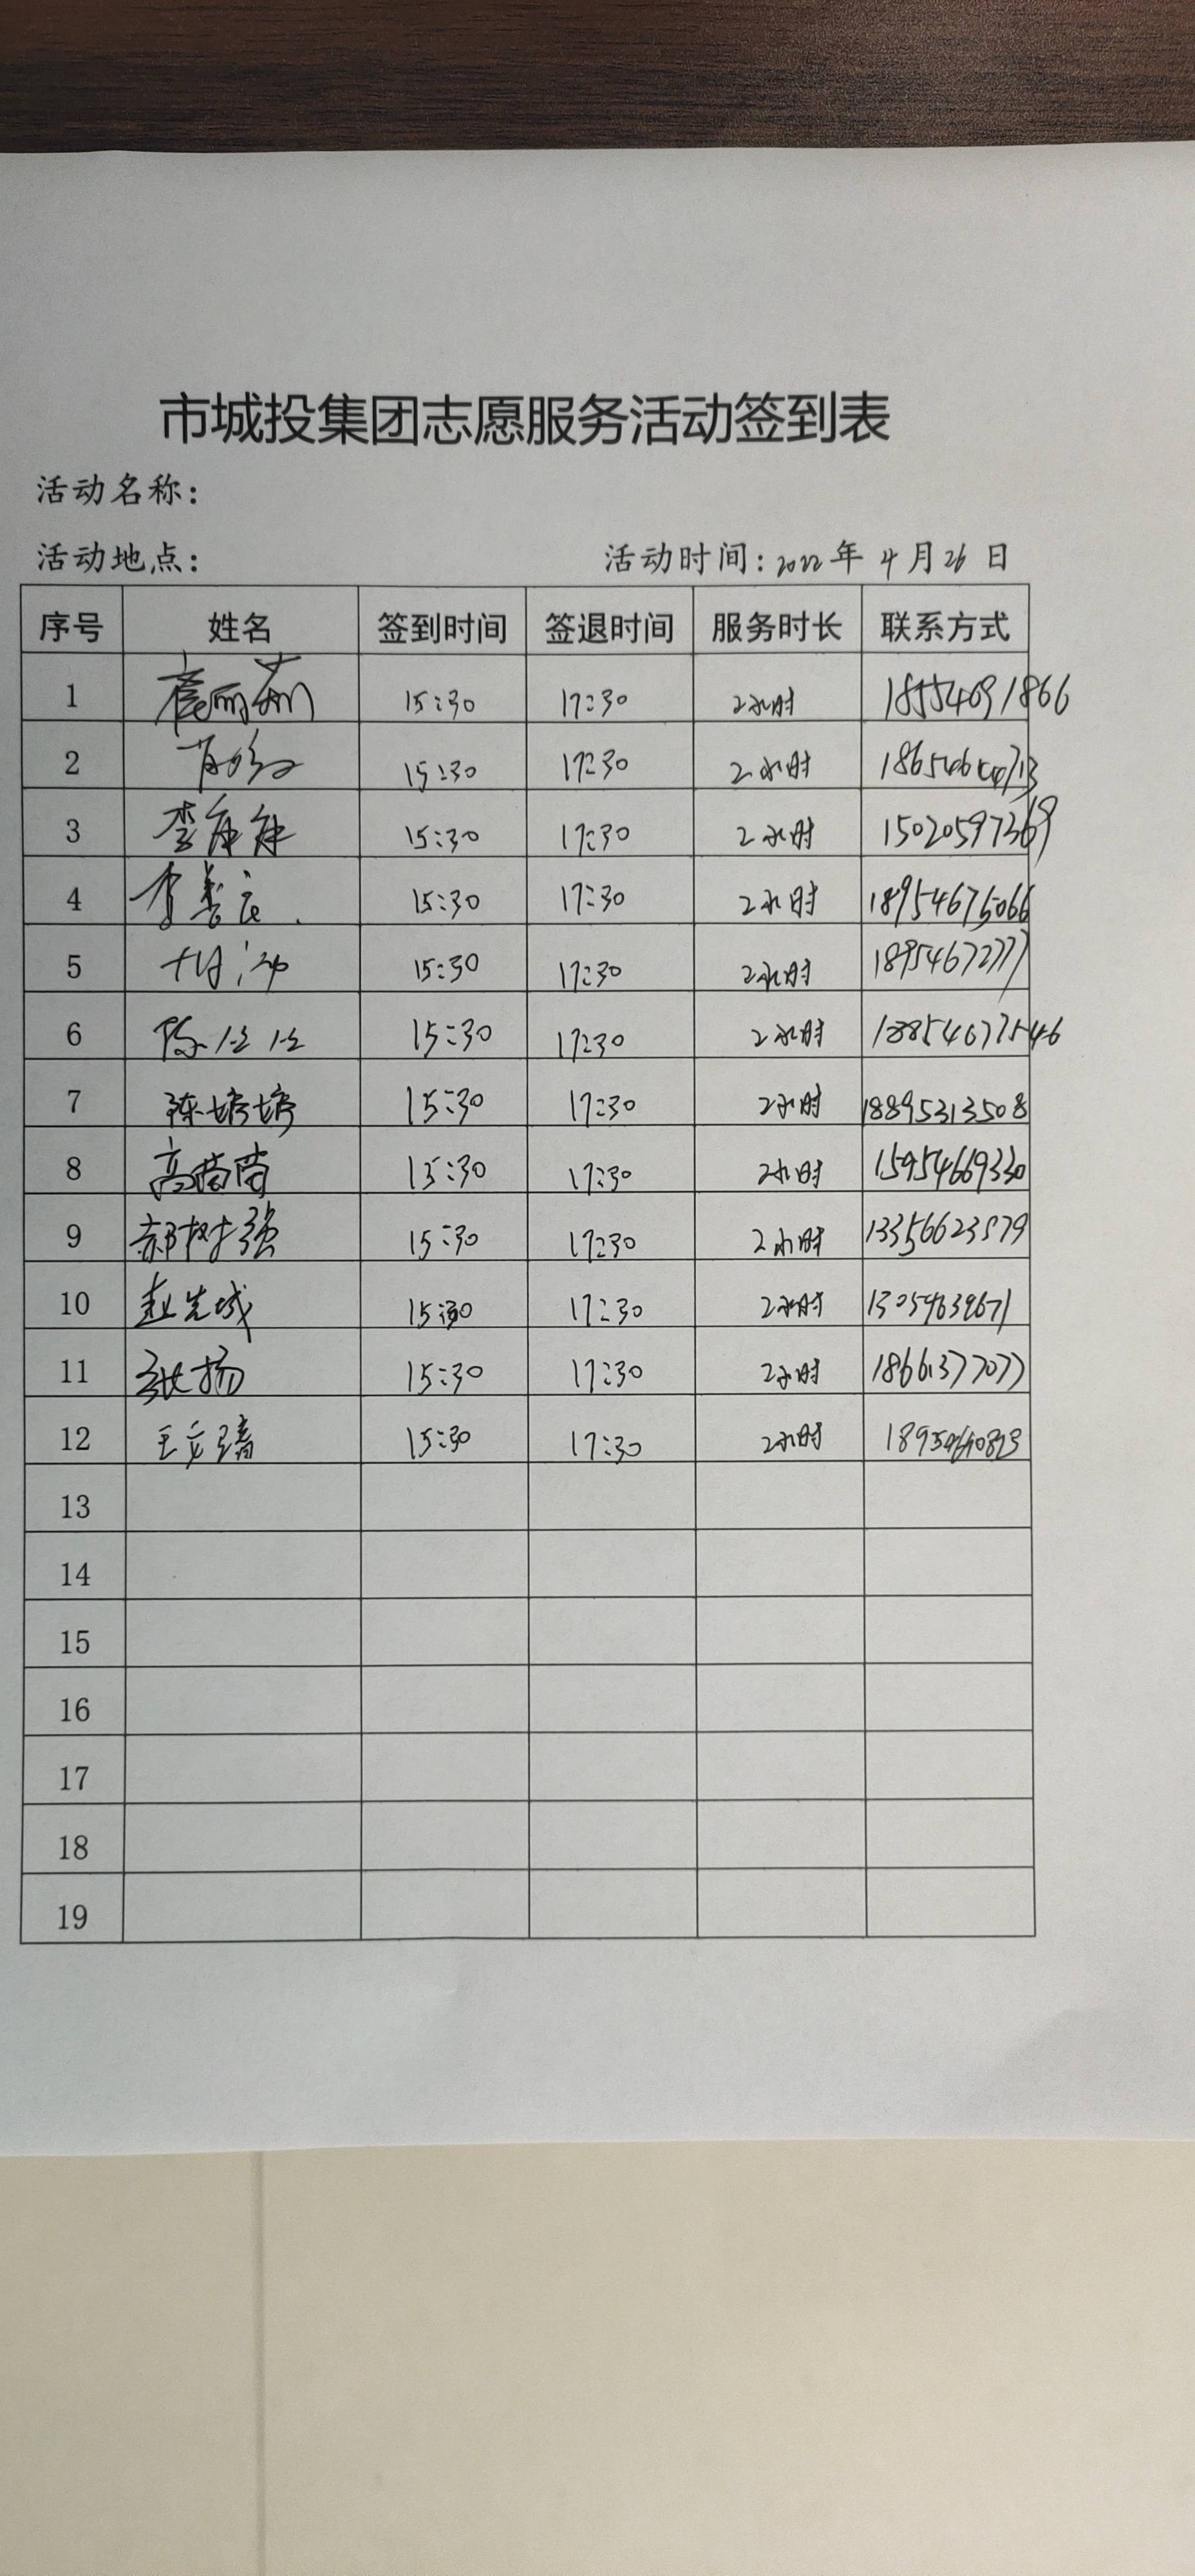 市城投集团志愿服务活动签到表
活动名称：
活动地点： 活动时间：2022年 4月 26日
序号 姓名 签到时间 签退时间 服务时长 联系方式
1 15:30 17:30 2小时 18554691866
2 15:30 17:30 2小时
3 李康康 15:30 17:30 2小时 15020597369
4 李 15:30 17:30 2小时 18954675066
5 15:30 17:30 2小时 18954672777
6 15:30 17:30 2小时 18854677546
7 陈婷婷 15:30 17:30 2小时 18895313508
8 高茜茜 15:30 17:30 2小时 15954669330
9 郝树强 15:30 17:30 2小时 13356623579
10 赵先城 15:30 17:30 2小时
11 张扬 15:30 17:30 2小时 18661377077
12 王立 15:30 17:30 2小时
13
14
15
16
17
18
19